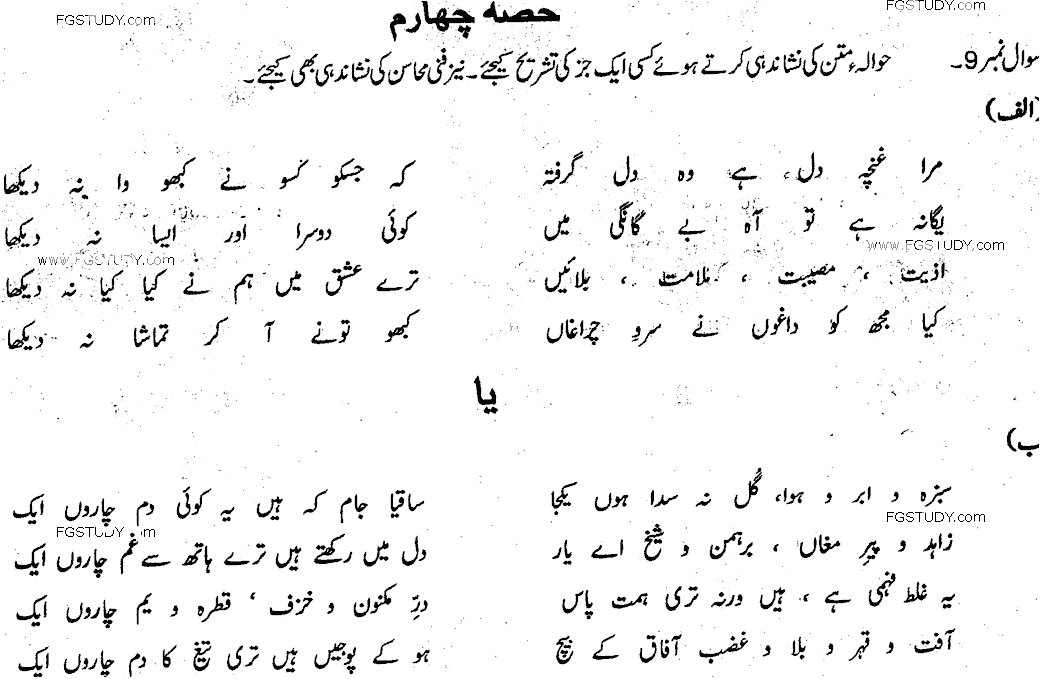 FGSTUDY.com
FGSTUDY.COM
حصہ چہارم
سوال نمبر 9۔ حوالہء متن کی نشاندہی کرتے ہوئے کسی ایک جز کی تشریح کیجئے۔ نیز فنی محاسن کی نشاندہی بھی کیجئے۔
(الف)
مرا غنچہ دل ہے وہ دل گرفتہ کہ جسکو کسو نے کبھو وا نہ دیکھا
یگانہ ہے تو آہ بے گانگی میں کوئی دوسرا اور ایسا نہ دیکھا
www.FGSTUDY.com
www.FGSTUDY.com
اذیت ، مصیبت ، ملامت ، بلائیں ترے عشق میں ہم نے کیا کیا نہ دیکھا
کیا مجھ کو داغوں نے سرو چراغاں کبھو تونے آ کر تماشا نہ دیکھا
یا
ب)
سبزہ و ابر و ہوا، گُل نہ سدا ہوں یکجا ساقیا جام کہ ہیں یہ کوئی دم چاروں ایک
FGSTUDY.com
FGSTUDY.com
زاہد و پیرِ مغاں ، برہمن و شیخ اے یار دل میں رکھتے ہیں ترے ہاتھ سے غم چاروں ایک
یہ غلط فہمی ہے ، ہیں ورنہ تری ہمت پاس درِّ مکنون و خزف ، قطرہ و یم چاروں ایک
آفت و قہر و بلا و غضب آفاق کے بیچ ہو کے پوجیں ہیں تری تیغ کا دم چاروں ایک